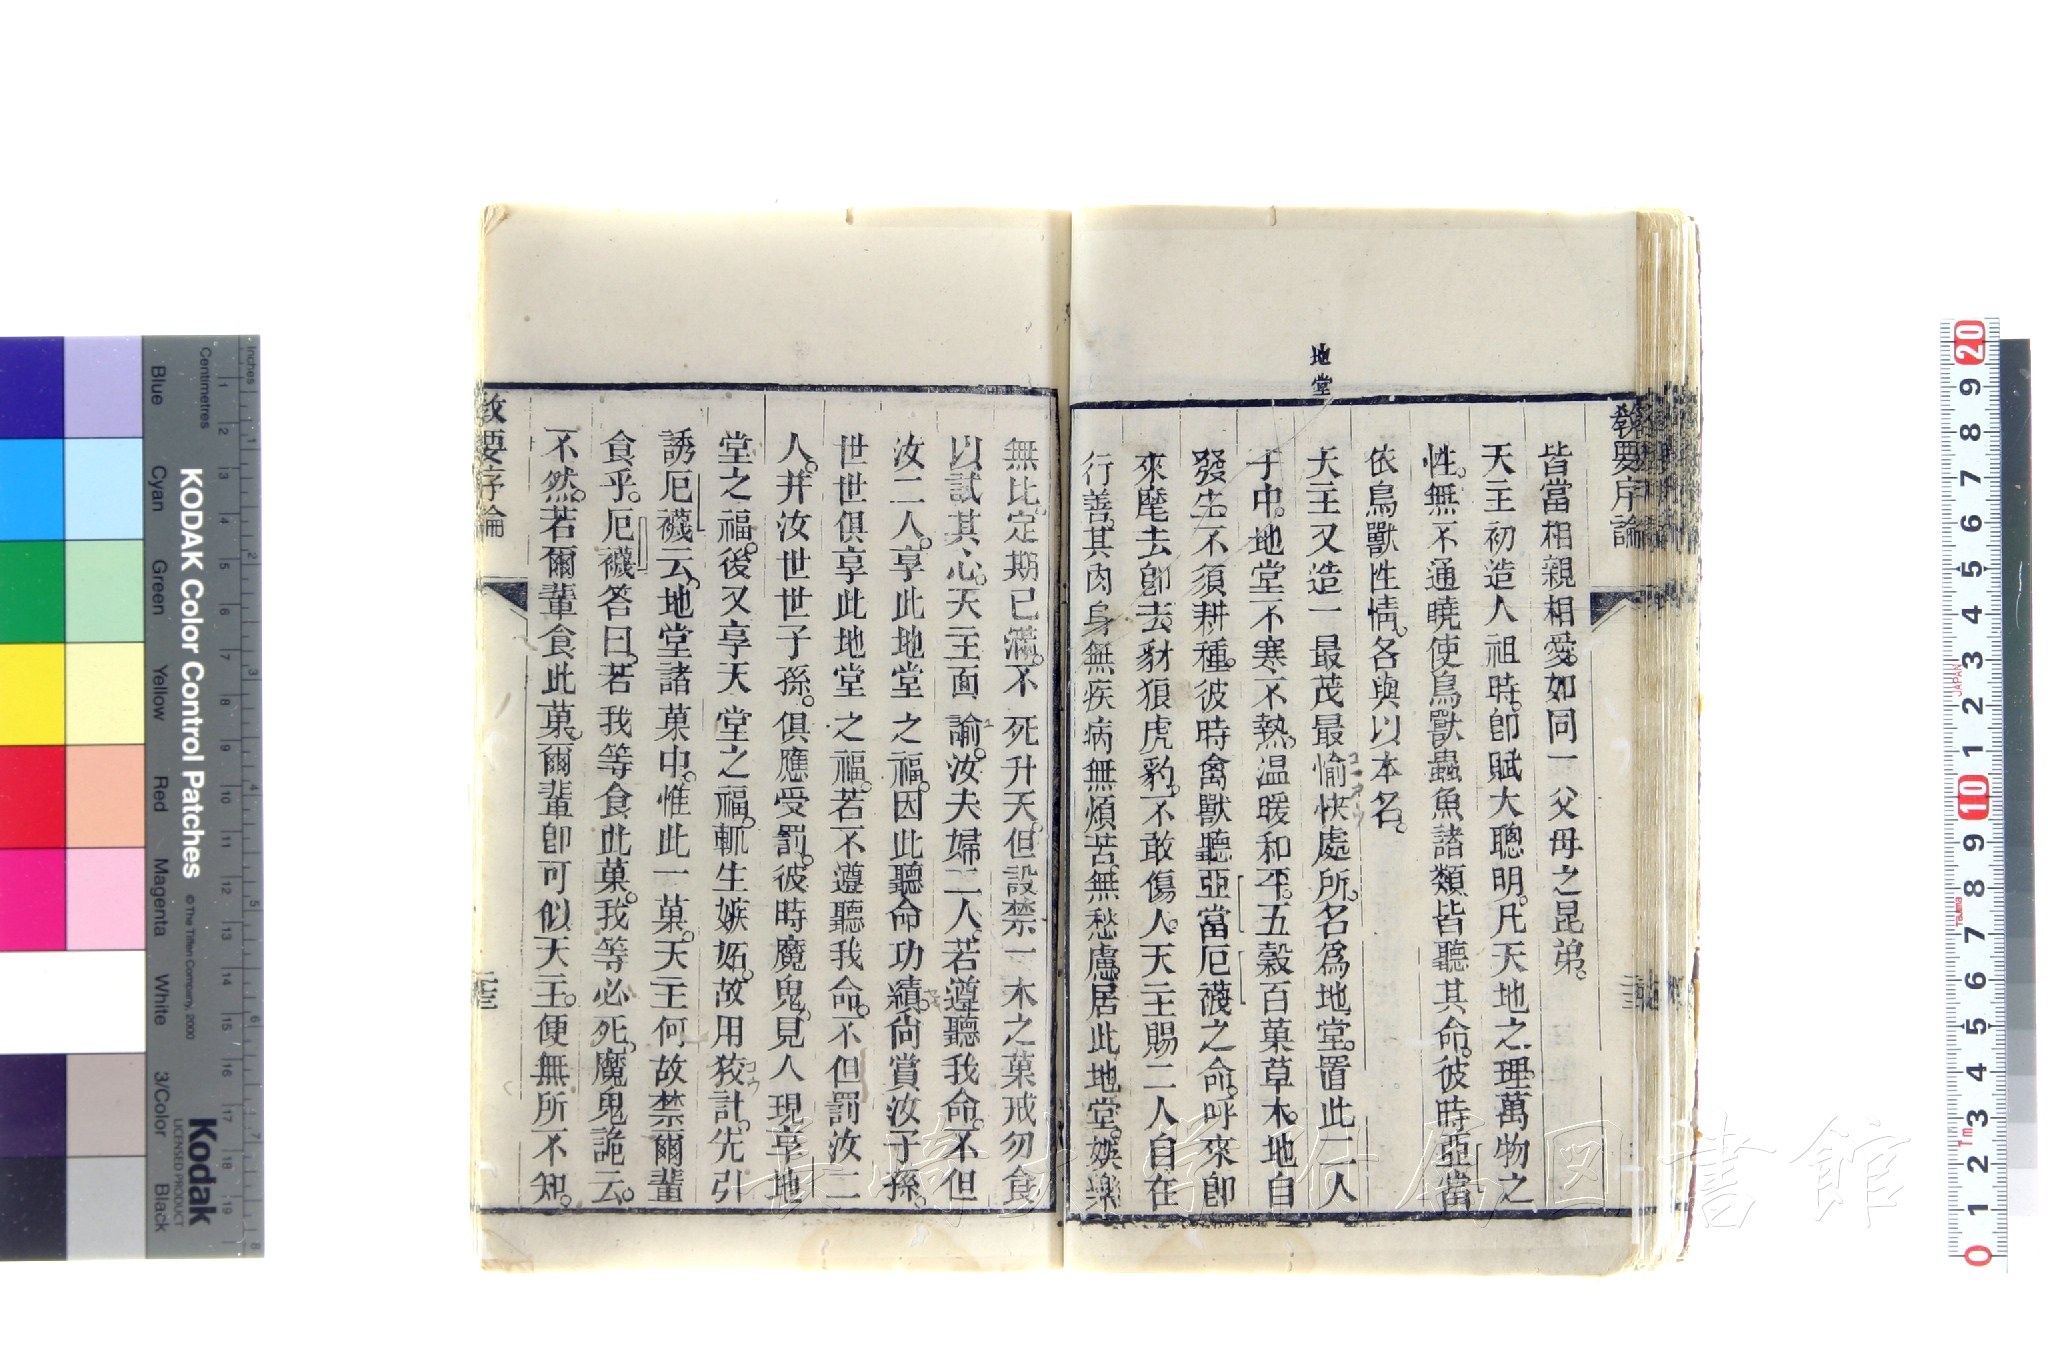 地堂
教要序論
皆當相親相愛。如同一父母之昆弟。
天主初造人祖時。卽賦大聰明。凡天地之理。萬物之
性。無不通曉使鳥獸蟲魚諸類皆聽其命。彼時亞當
依鳥獸性情。各與以本名。
天主又造一最茂最愉快處所。名爲地堂。置此二人
于中。地堂不寒不熱。温暖和平。五穀百菓草木。地自
發生。不須耕種。彼時禽獸聽亞當厄襪之命。呼來卽
來麾去卽去豺狼虎豹。不敢傷人。天主賜二人自在
行善。其肉身無疾病無煩苦。無愁慮。居此地堂。娛樂
無比。定期已滿。不死升天。但設禁一木之菓戒勿食
以試其心。天主面諭。汝夫婦二人。若遵聽我命。不但
汝二人。享此地堂之福。因此聽命功績。尙賞汝子孫。
世世俱享此地堂之福。若不遵聽我命。不但罰汝二
人。并汝世世子孫。俱應受罰。彼時魔鬼。見人現享地
堂之福。後又享天堂之福。輒生嫉妬。故用狡計。先引
誘厄襪云。地堂諸菓中。惟此一菓。天主何故禁爾輩
食乎。厄襪答曰。若我等食此菓。我等必死。魔鬼詭云。
不然。若爾輩食此菓。爾輩卽可似天主。便無所不知。
教要序論
KODAK Color Control Patches
© The Tiffen Company, 2000
Kodak
LICENSED PRODUCT
Inches
Centimetres
Blue
Cyan
Green
Yellow
Red
Magenta
White
3/Color
Black
長崎大学付属図書館
JAPAN